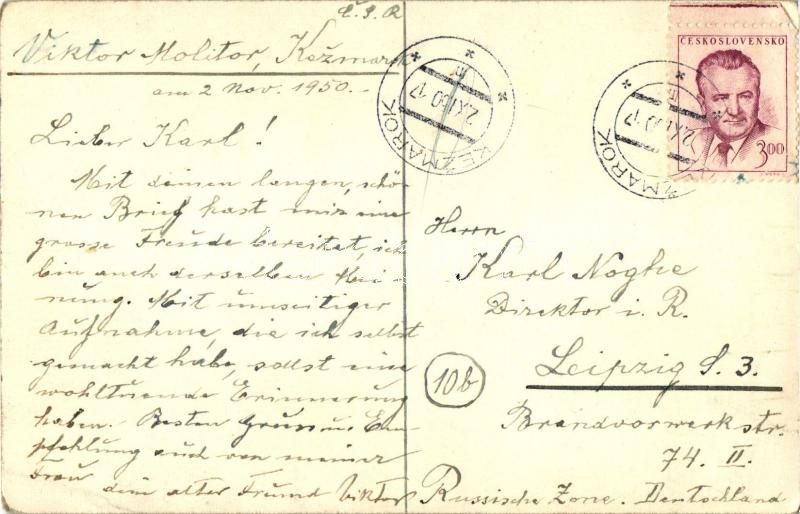 Č. S. R
Viktor Molitor, Kežmarok
am 2 Nov. 1950.-
Lieber Karl!
Mit deinen langen, schö-
nen Brief hast mir eine
grosse Freude bereitet, ich
bin auch derselben Mei-
nung. Mit umseitiger
Aufnahme, die ich selbst
gemacht habe, sollst eine
wohltuende Erinnerung
haben. Besten Gruss u. Em-
pfehlung auch von meiner
Frau
dein alter Freund Viktor
KEŽMAROK
2.XI.50-17
KEŽMAROK
2.XI.50-17
ČESKOSLOVENSKO
3.00
Herrn
Karl Noghe
Direktor i. R.
Leipzig S. 3.
10b
Brandvorwerkstr.
74. II.
Russische Zone. Deutschland